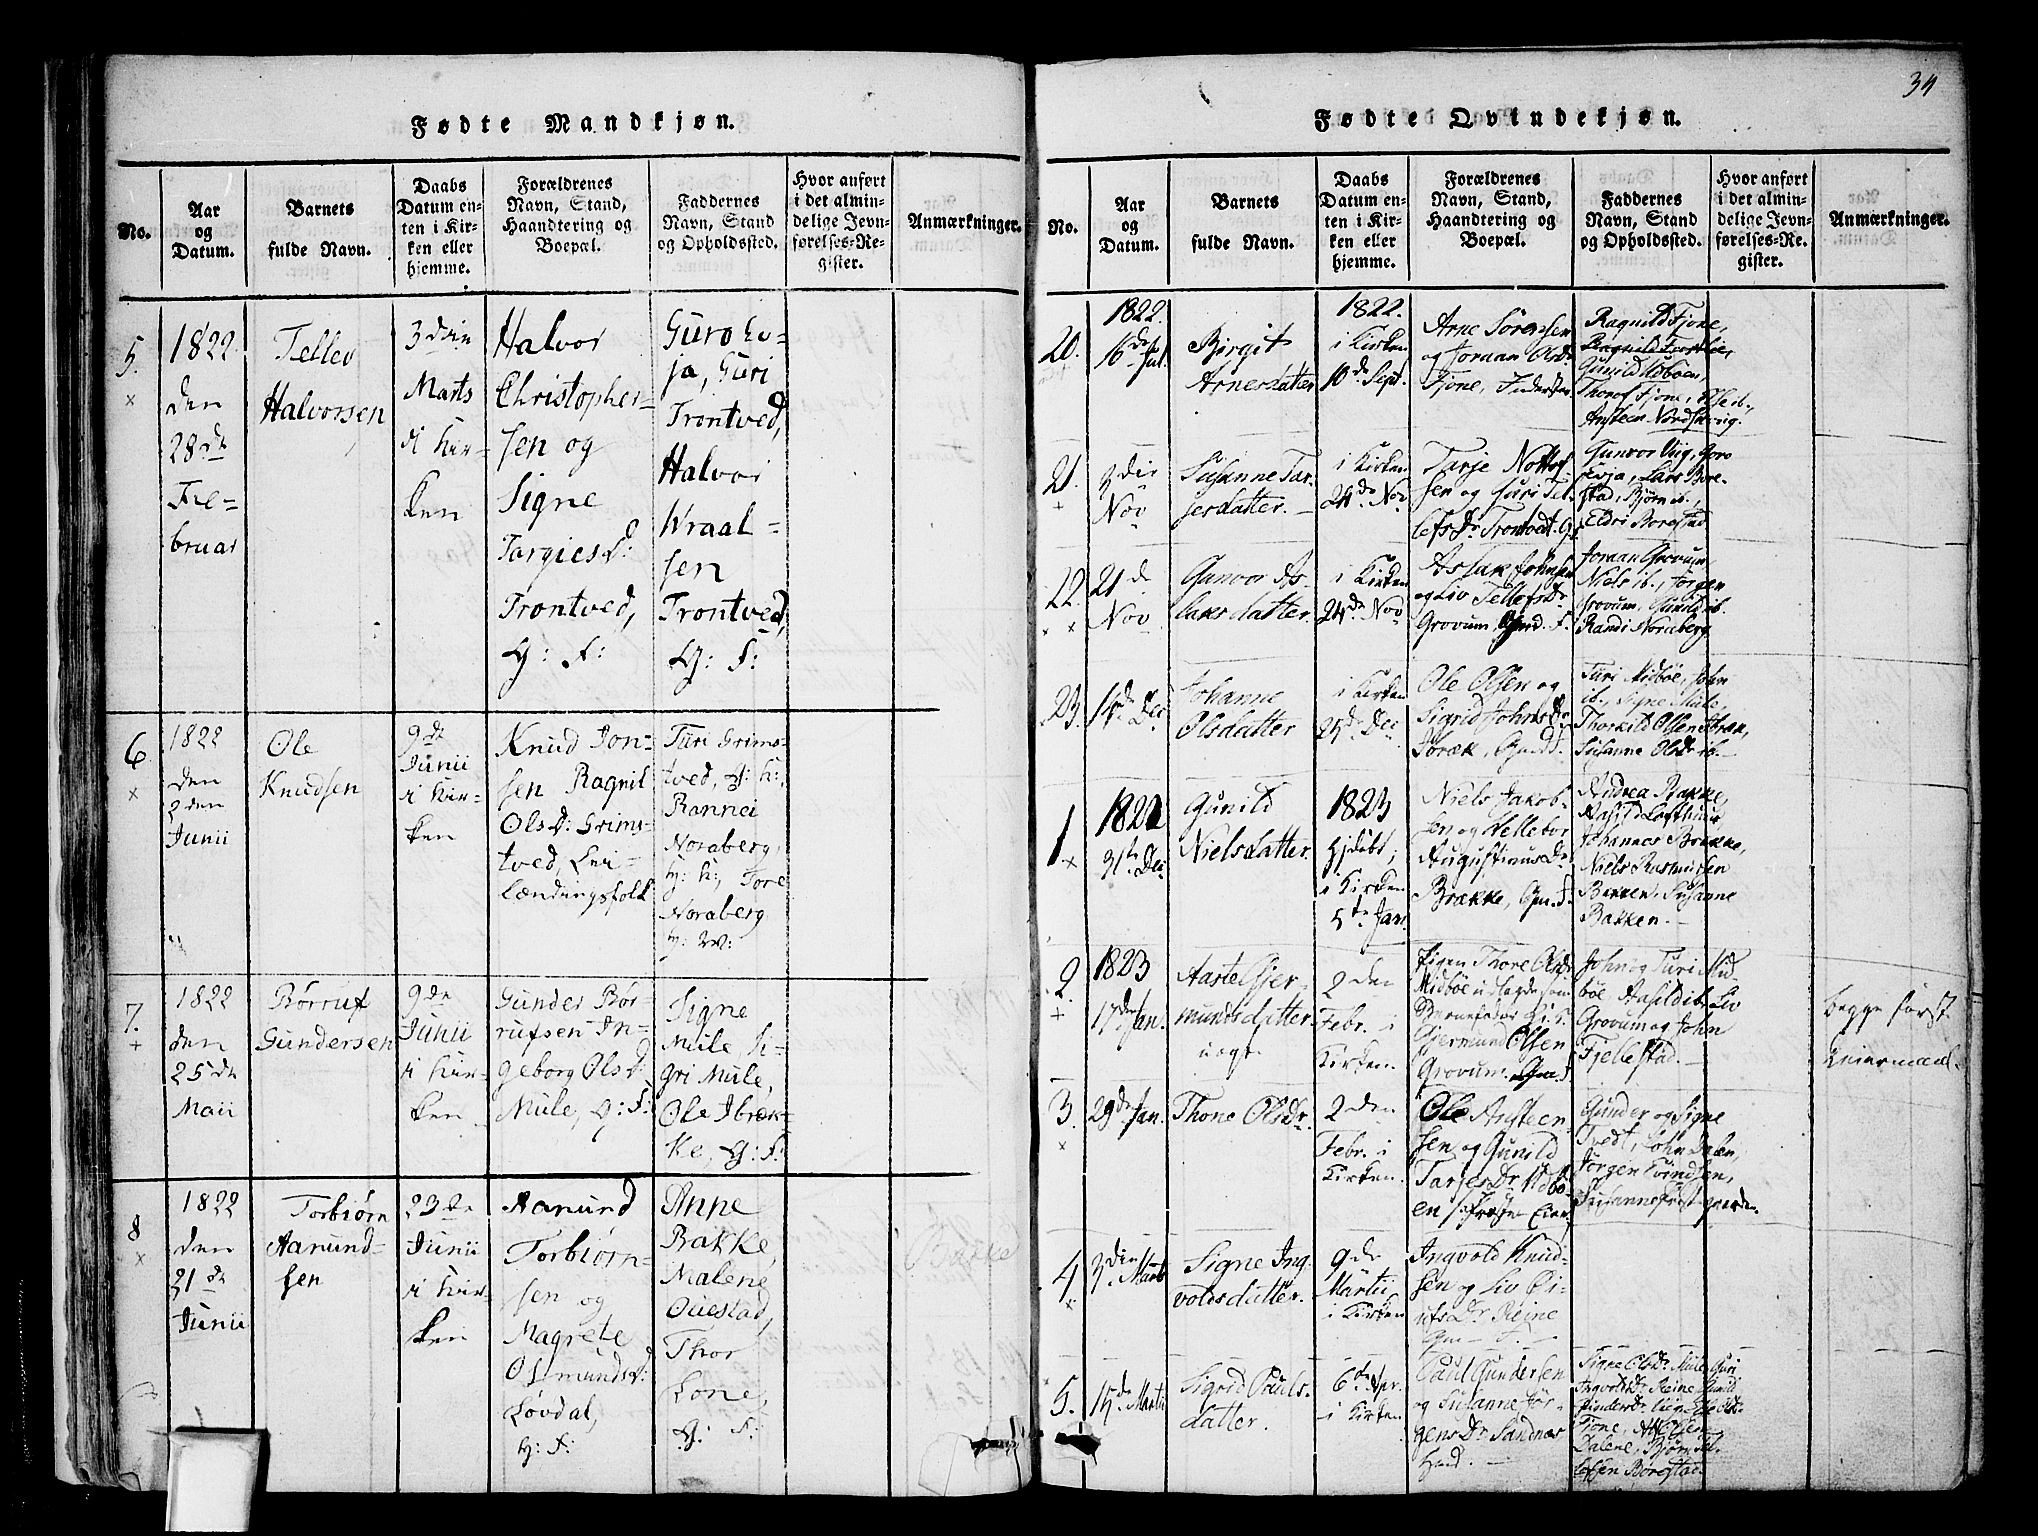 34
Fødte Mandkjøn.
No.
Aar
og
Datum.
Barnets
fulde Navn.
Daabs
Datum en-
ten i Kir-
ken eller
hjemme.
Forældrenes
Navn, Stand,
Haandtering og
Boepæl.
Faddernes
Navn, Stand
og Opholdssted.
Hvor anført
i det almin-
delige Jevn-
førelses-Re-
gister.
Anmærkninger.
5.
1822
den
28de
Fe-
bruar
Tellev
Halvorssen
3die
Marts
i Kir-
ken
Halvor
Christopher-
sen og
Signe
Targiesd:
Trontved,
G: F:
Guro Ev-
ja, Guri
Trontved,
Halvor
Wraal-
sen
Trontved,
G: F:
6
1822
den
2den
Junii
Ole
Knudsen
9de
Junii
i Kir-
ken
Knud Jon-
sen Ragnil
Olsd: Grims-
tved, Lei-
lændingsfolk
Turi Grims-
tved, G: K:,
Rannei
Noraberg,
G: K:, Tore
Noraberg
7.
1822
den
25de
Maii
Børruf
Gundersen
9de
Junii
i Kir-
ken
Gunder Bør-
rufsen In-
geborg Olsd:
Mule, G: F:
Signe
Mule, Si-
gri Mule,
Ole Ibrek-
ke, G: F:
8
1822
den
21de
Junii
Torbiørn
Aanund-
sen
23de
Junii
i Kir-
ken
Aanund
Torbiørn-
sen og
Magrete
Osmundsd:
Løvdal,
G: F:
Anne
Bakke,
Malene
Ouestad,
Thor
Lone,
G: F:
Bakke
Fødte Qvindekjøn.
No.
Aar
og
Datum.
Barnets
fulde Navn.
Daabs
Datum en-
ten i Kir-
ken eller
hjemme.
Forældrenes
Navn, Stand,
Haandtering og
Boepæl.
Faddernes
Navn, Stand
og Opholdssted.
Hvor anført
i det almin-
delige Jevn-
førelses-Re-
gister.
Anmærkninger.
20.
1822.
16de Jul.
Birgit
Arnesdatter
1822.
i Kirken
10de Sept.
Arne Sørensen
og Joraan Olsdr
Fjone,
Ragnild Fjone,
Gunild Udbøen,
Thorof Fjone,
Ansteen Nordskevig.
21.
3die
Nov
Susanne Tar-
jesdatter.
i Kirken
24de Nov
Tarje Nottof-
sen og Guri Tel-
lefs Dr Trontvedt. G.
Gunvor Viig, Goro
Evja, Lars Bore-
stad, Bjørn ib.,
Eldri Borestad
22.
21de
Nov
Gunvor As-
laksdatter.
i Kirken
24de Nov
Aslak Johnsen
og Liv Tellefs Dr
Grovum, Gmd. F.
Joraan Grovum
Niels ib., Jørgen
Grovum, Gunild ib.
Randi Noraberg
23.
14de Dec
Johanne
Olsdatter
i Kirken
25de Dec
Ole Olsen og
Sigrid Johns Dr
Turi Midbøe, John
ib., Signe Mule,
Thorkild Olsen
Susanne Olsdr ib.
1
1822
31te Dec
Gunild
Nielsdatter.
1823
Hjdøbt;
i Kirken
5te Jan.
Niels Jakob-
sen og Hellebor
Augustinus Dr
Brække, Gm. F.
Andrea Bakke,
Aasild Lofthuus
Johannes Brække,
Niels Rasmussen
Bakken, Susanne
Bakken.
2.
1823
17de Jan.
Aaste Gjer-
mundsdatter.
uægte
2den
Febr. i
Kirken.
Pigen Thore Olsdr
Midbøe udlagde som
Barnefader
Gjermund Olsen
Grovum. Gm. S
John og Turi Mid-
bøe Aasild ib. Liv
Grovum og John
Fjellestad.
begge først.
Leiermaal.
3.
29de Jan.
Thone Olsdr.
2den
Febr. i
Kirken.
Ole Ansteen-
sen og Gunild
Tarjes Dr Udbø-
en
Gunder og Signe
Tvedt, John Dalen,
Jørgen Evindsen,
Susanne
4
3die Marts
Signe Ing-
voldsdatter.
9de
Martii
i Kirken
Ingvold Knud-
sen og Liv Ei-
ufs Dr Reine
Gm F.
5.
15de Martii
Sigrid Pauls-
datter.
6te Apr.
i Kirken
Paul Gundersen
og Susanne Jør-
gens Dr Sandnæs
Signe Olsdr Mule, Guri
Ingvoldsdr Reine, Gunild
Fjone,
Dalene, Bjørn Tel-
lefsen Borestad.